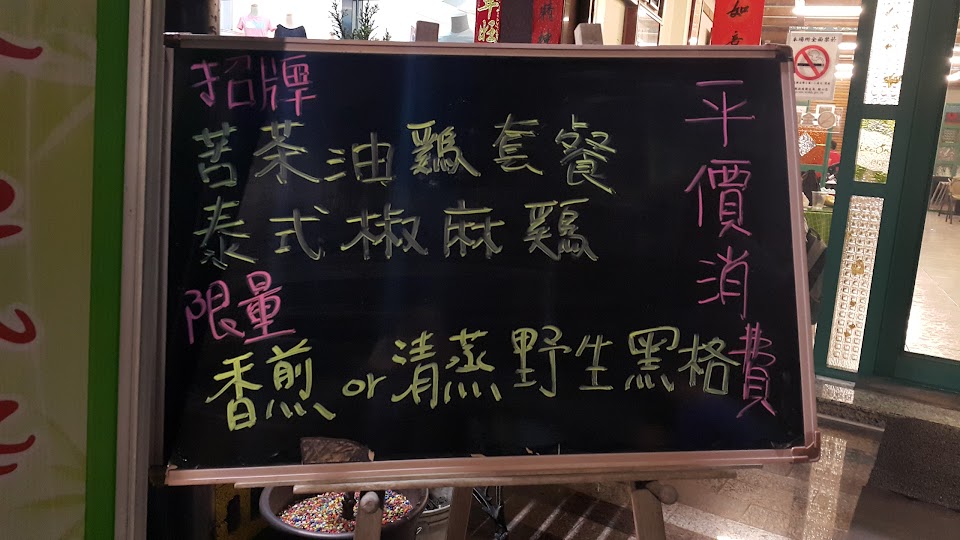 招牌
苦茶油鷄套餐
泰式椒麻鷄
限量
香煎or清蒸野生黑格
平價消費
如